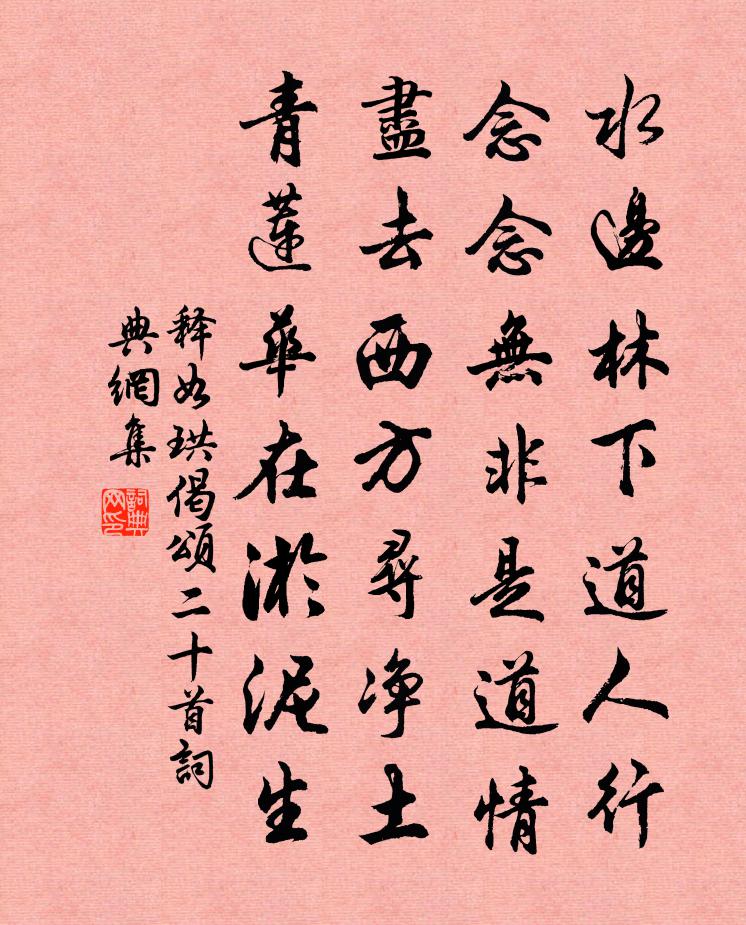 水邊林下道人行
念念無非是道情
盡去西方尋净土
青蓮華在淤泥生
释如珙偈頌二十首詞
典網集
詞典
网印